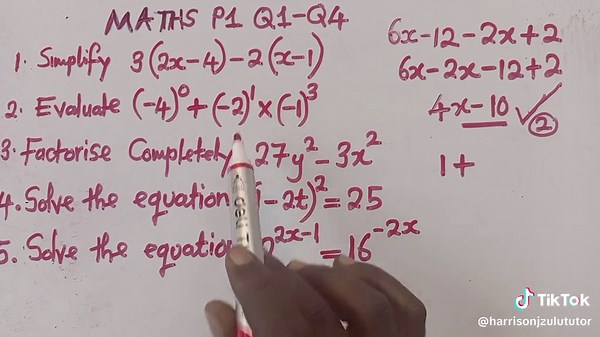 MATHS P1 Q1-Q4
1. Simplify 3(2x-4)-2(x-1)
2. Evaluate (-4)⁰+(-2)¹×(-1)³
3. Factorise Completely 27y²-3x²
4. Solve the equation -2t)²=25
5. Solve the equation 2x-1 =16⁻²ˣ
6x-12-2x+2
6x-2x-12+2
4x-10 ✓ 2
1+
TikTok
@harrisonjzulututor